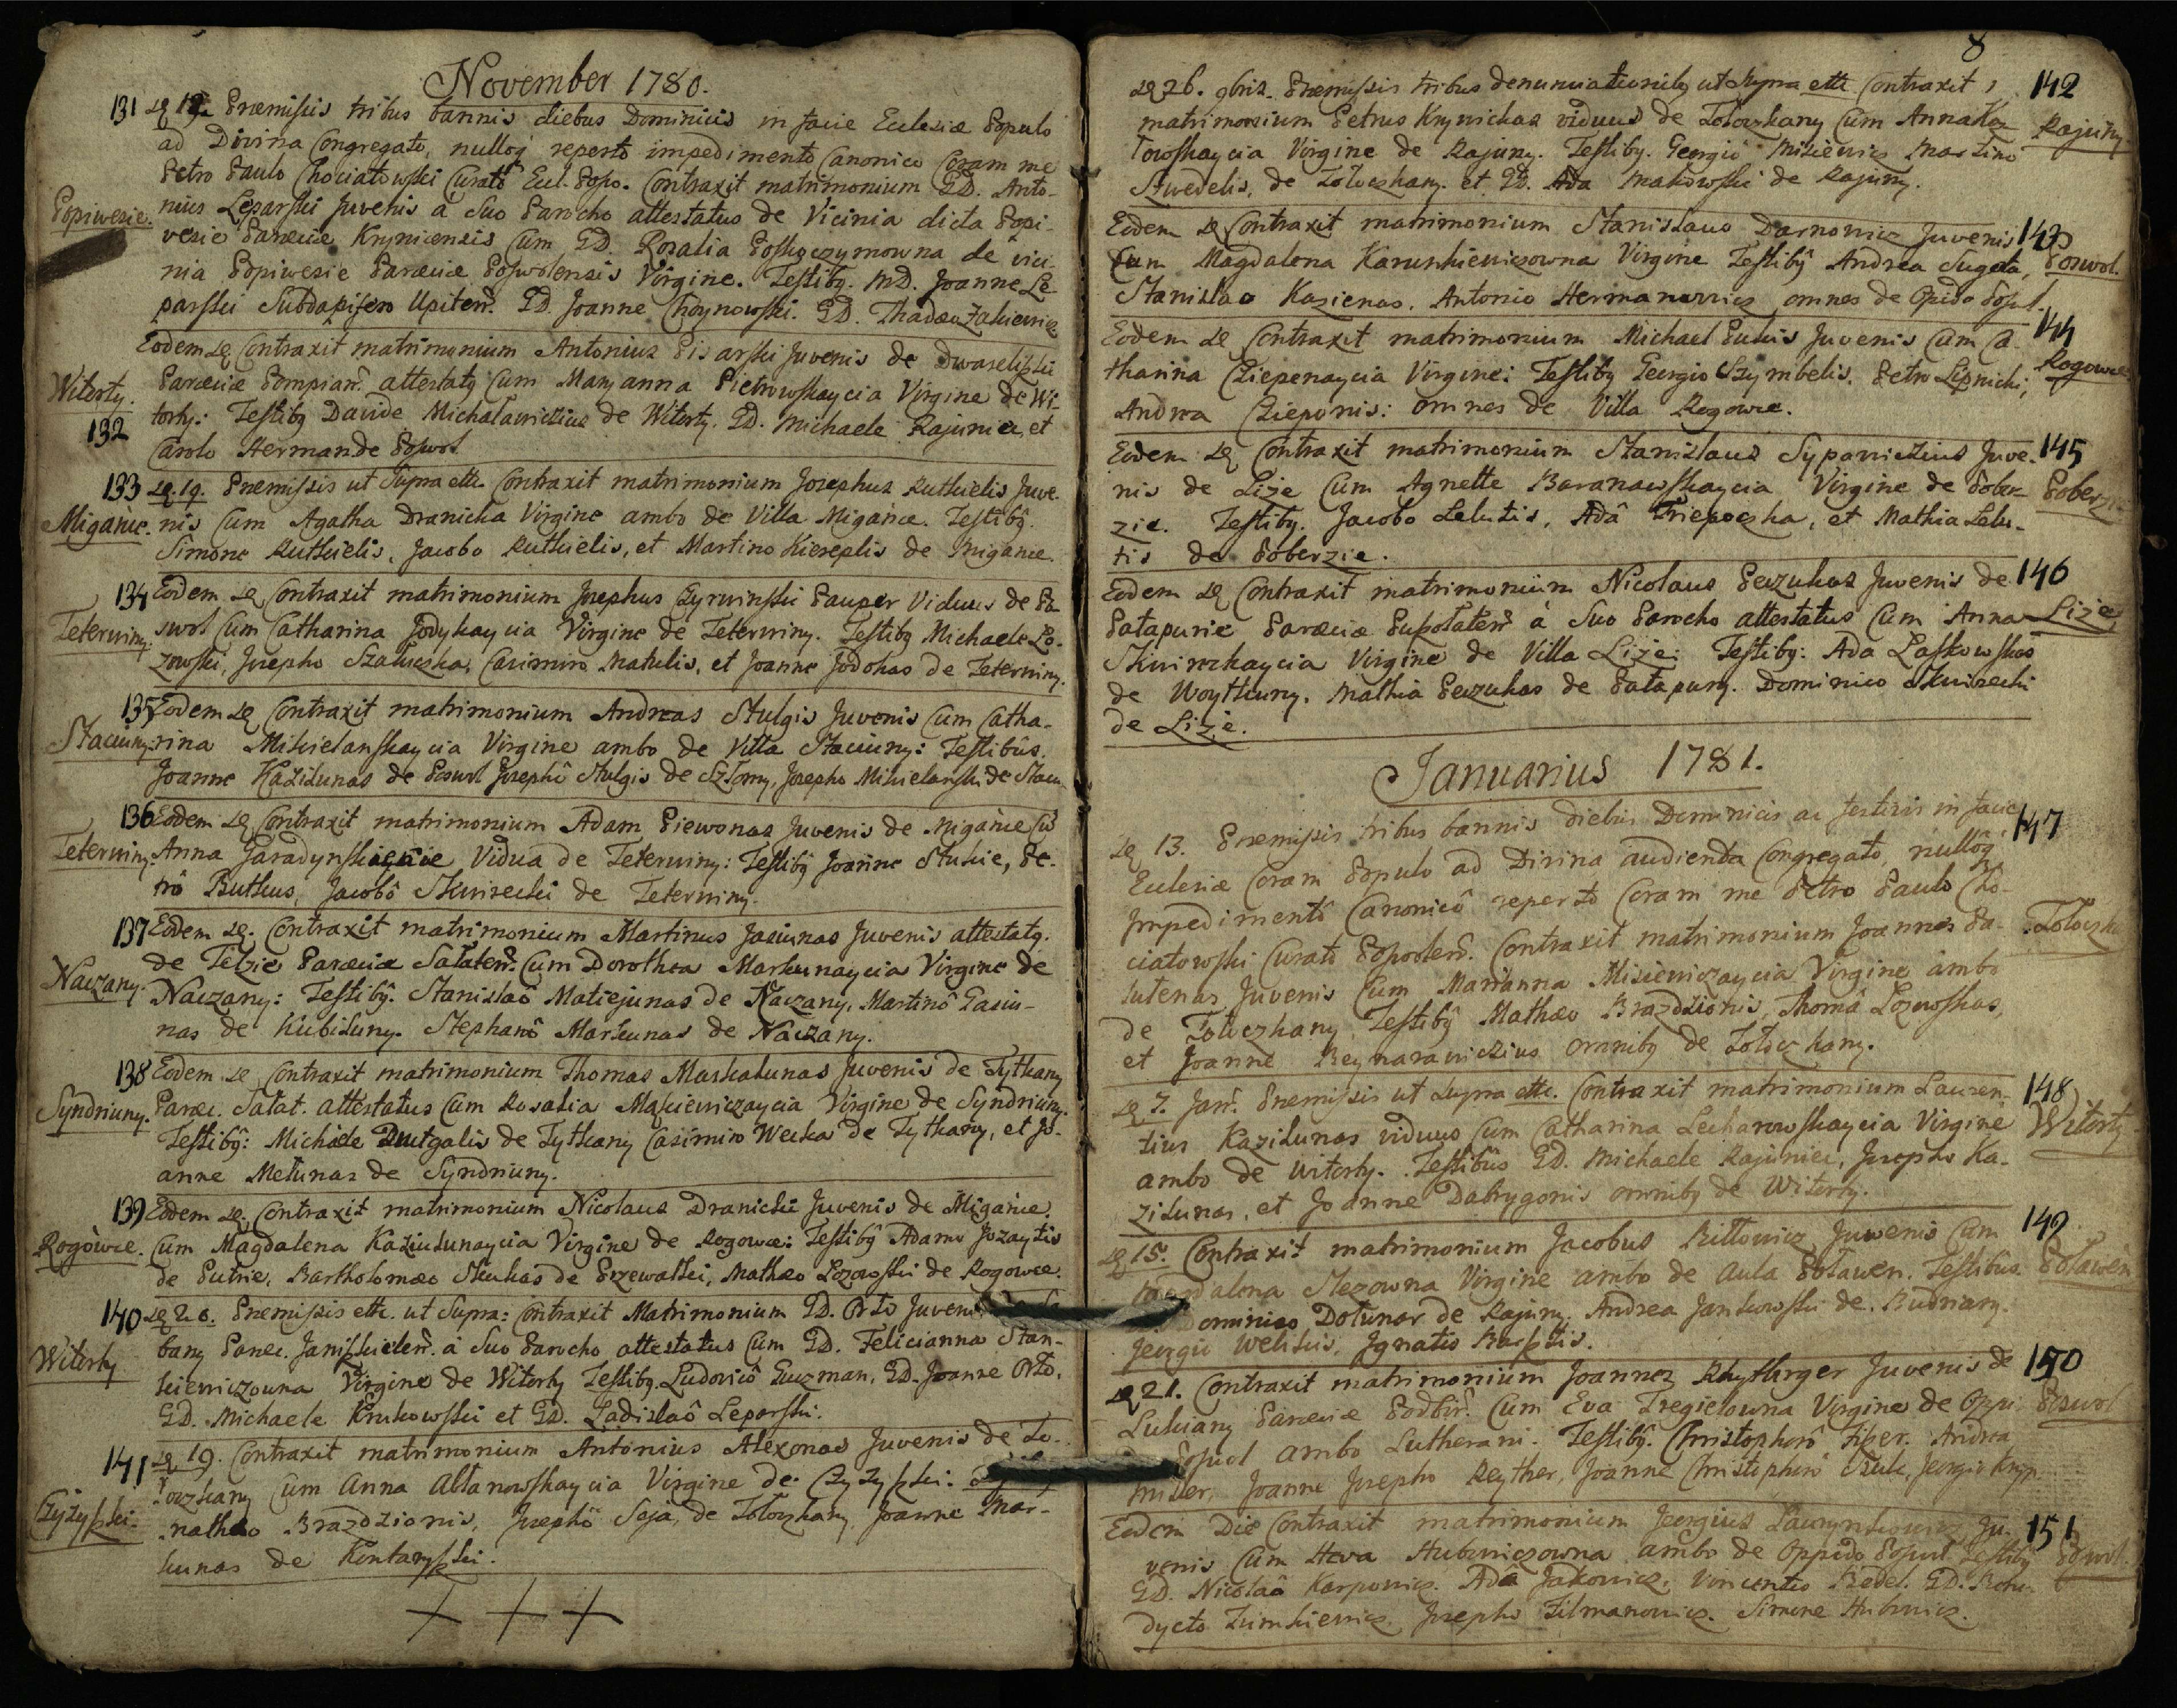 November 1780.
131 Præmissis tribus bannis diebus Dominicis in facie Ecclesiæ Populo
ad Divina Congregato, nulloq reperto impedimento Canonico Coram me
Petro Paulo Chociatowski Curato Contraxit matrimonium GD. Anto-
Popiwesie. nius Leparski Juvenis a Suo Parocho attestatus de Vicinia dicta Popi-
wesie Paræciæ Krynicensis Cum GD. Rosalia de vici-
nia Popiwesie Paræciæ Poswolensis Virgine. Testibq. MD. Joanne Le-
parski Subdapifero Upiten. GD. Joanne Choynowski. GD. Thadæo
Eodem Contraxit matrimonium Antonius Pisarski Juvenis de Dwaseliszki
Witorty. Paræciæ Pompian. attestatq Cum Maryanna Pietrowskaycia Virgine de Wi-
132 torty: Testibq Davide Michalawiczius de Witorty. GD. Michaele Rajuniec, et
Carolo Herman de Poswol
133 19. Præmissis ut Supra ettc Contraxit matrimonium Josephus Rutkielis Juve-
Migańce. nis Cum Agatha Dranicka Virgine ambo de Villa Migańce. Testibq.
Simone Rutkielis, Jacobo Rutkielis, et Martino Kiereplis de Migance.
134 Eodem Contraxit matrimonium Josephus Czyrwinski Pauper Viduus de Po-
Teterwiny. swol Cum Catharina Jodykaycia Virgine de Teterwiny. Testibq Michaele Lo-
zowski, Josepho Szaluczka, Casimiro Matulis, et Joanne Jodokas de Teterwiny.
135 Eodem Contraxit matrimonium Andreas Stulgis Juvenis Cum Catha-
Staciuny. rina Mikielanskaycia Virgine ambo de Villa Staciuny: Testibus.
Joanne Kazilunas de Poswol Josepho Stulgis de Szlomy, Josepho Mikielanski de Staciu.
136 Eodem Contraxit matrimonium Adam Piewonas Juvenis de Migańce Cu
Teterwiny. Anna Vidua de Teterwiny: Testibq Joanne Stukie, Pe-
tro Butkus, Jacobo Skwirecki de Teterwiny.
137 Eodem Contraxit matrimonium Martinus Jasiunas Juvenis attestatq.
de Telzie Paræciæ Salaten. Cum Dorothea Markunaycia Virgine de
Naczany. Naczany: Testibq. Stanislao Matiejunas de Naczany, Martino Gasiu-
nas de Kubiluny. Stephano Markunas de Naczany.
138 Eodem Contraxit matrimonium Thomas Maskalunas Juvenis de Tytkany
Syndriuny. Paræc. Salat. attestatus Cum Rosalia Mackiewiczaycia Virgine de Syndriuny.
Testibq: Michaele Dwtgalis de Tytkany Casimiro Wecka de Tytkany, et Jo-
anne Melunas de Syndriuny.
139 Eodem Contraxit matrimonium Nicolaus Dranicki Juvenis de Migańce.
Rogowce. Cum Magdalena Kaziulunaycia Virgine de Rogowce: Testibq Adamo Jozaytis
de Putrie, Bartholomæo Skukas de Przewalki, Mathæo Lozowski de Rogowce.
140 Præmissis ettc. ut Supra: Contraxit Matrimonium GD. Orto Juveni
bany Paræc. a Suo Parocho attestatus Cum GD. Felicianna Stan-
Witorty kiewiczowna Virgine de Witorty Testibq. Ludovico Guzman, GD. Joanne Orto,
GD. Michaele Krukowski et GD. Ladislao Leparski.
141 19. Contraxit matrimonium Antonius Alexonas Juvenis de To-
loczkany Cum Anna Ablanowskaycia Virgine de Czyzyszki:
Czyzyszki. Mathæo Brazdzionis, Josepho Saja, de Toloczkany, Joanne Mar-
kunas de Kontaryszki.
+ + +
8
26. 9bris. Præmissis tribus denunciationibq ut Supra ettc Contraxit 142
matrimonium Petrus Krywickas viduus de Toloczkany Cum Anna Koz-
lowskaycia Virgine de Rajuny. Testibq. Georgio Misiewicz Martino Rajuny
Szwedelis, de Toloczkany. et GD. Ada Makowski de Rajuny.
Eodem Contraxit matrimonium Stanislaus Darnowicz Juvenis 143
Cum Magdalena Karunkiewiczowna Virgine Testibq Andrea Sugeta, Poswol.
Stanislao Kazienas. Antonio Hermanowicz omnes de Opido Poswol.
Eodem Contraxit matrimonium Michael Pukis Juvenis Cum Ca- 144
tharina Cziepenaycia Virgine: Testibq Georgio Szymbelis. Petro Lipnicki, Rogowce
Andrea Czieponis: omnes de Villa Rogowce.
Eodem Contraxit matrimonium Stanislaus Sypawiczius Juve- 145
nis de Lize Cum Agnette Baranawskaycia Virgine de Pober- Poberzie
zie. Testibq. Jacobo Lelutis, Ada Triepoczka, et Mathia Lelu-
tis de Poberzie.
Eodem Contraxit matrimonium Nicolaus Peczukas Juvenis de 146
Patapurie Paræciæ à Suo Parocho attestatus Cum Anna Lize
Skwirzkaycia Virgine de Villa Lize: Testibq: Ada Laskowskas
de Woytkuny, Mathia Peczukas de Patapury. Dominico Skwirecki
de Lize.
Januarius 1781.
13. Præmissis tribus bannis diebus Dominicis ac festivis in facie 147
Ecclesiæ Coram Populo ad Divina audienda Congregato, nulloq
Impedimento Canonico reperto Coram me Petro Paulo Cho-
ciatowski Curato Poswolen. Contraxit matrimonium Joannes Pa- Toloczka
lutenas Juvenis Cum Marianna Misiewiczaycia Virgine ambo
de Toloczkany, Testibq Mathæo Brazdzionis, Thoma Lozowskas,
et Joanne Reynarawiczius omnibq de Toloczkany.
7. Jan. Præmissis ut Supra ettc. Contraxit matrimonium Lauren- 148
tius Kazilunas viduus Cum Catharina Lecharowskaycia Virgine Witorty
ambo de Witorty. Testibus GD. Michaele Rajuniec, Josepho Ka-
zilunas, et Joanne Dabrygonis omnibq de Witorty.
15. Contraxit matrimonium Jacobus Rittowicz Juvenis Cum 149
Magdalena Slezowna Virgine ambo de Aula Polawen. Testibus. Polawen
Dominico Dotunar de Rajuny, Andrea Jankowski de
Georgio Weliskis, Ignatio
21. Contraxit matrimonium Joannes Rhytinger Juvenis de 150
Lukiany Paræciæ Podbir. Cum Eva Fregielowna Virgine de Oppi- Poswol
Poswol ambo Lutherani. Testibq. Christophoro Andrea
Joanne Josepho Reyther, Joanne Christophoro
Eodem Die Contraxit matrimonium Georgius Ju- 151
venis Cum Heva Hubowiczowna ambo de Oppido Poswol Testibq Poswol.
GD. Nicolao Karpowicz. Ada Jakowicz, Vincentio Bedel. GD. Bene-
dycto Zimkiewicz Josepho Tilmanowicz. Simone Hubowicz.